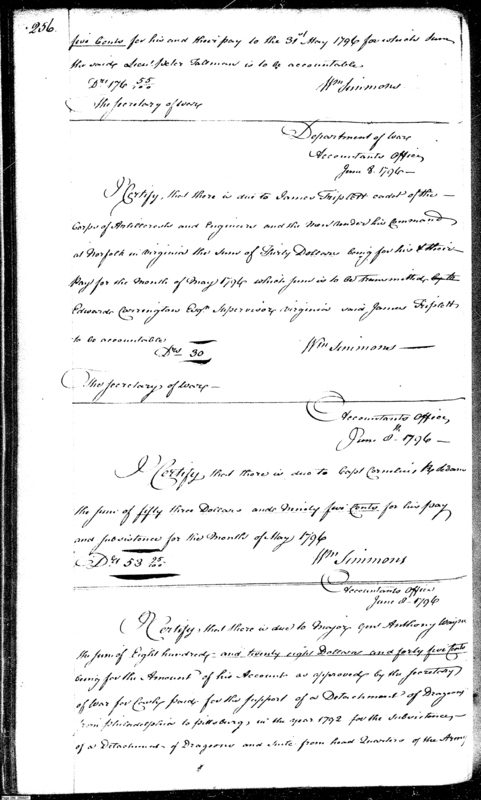 256
five Cents for his and their pay to the 31st May 1796 for which sum
the said Lieut Peter Taleman is to be accountable
Drs 176 55/100 Wm Simmons
The Secretary of War
Department of War
Accountants Office
June 8. 1796
I Certify, that there is due to James Triplett cadet of the
Corps of Artillerists and Engineers and the Men under his Command
at Norfolk in Virginia the Sum of Thirty Dollars being for his & their
Pay for the Month of May 1796 which sum is to be transmitted by the
Edward Carrington Esqr Supervisor Virginia said James Triplett
to be accountable
Drs 30 Wm Simmons
The Secretary of War
Accountants Office
June 8th 1796
I Certify, that there is due to Capt Cornelius
the sum of fifty three Dollars and Ninety five Cents for his pay
and subsistence for the Months of May 1796
Drs 53 25/100 Wm Simmons
Accountants Office
June 8. 1796
I Certify, that there is due to Major Genl Anthony Wayne
the sum of Eight hundred and twenty eight Dollars and forty five Cents
being for the Amount of his Account as approved by the Secretary
of War for Cash paid for the support of a Detachment of Dragoons
from Philadelphia to Pittsburg, in the year 1792 for the Subsistence
of a Detachment of Dragoons and Suite from head Quarters of the Army